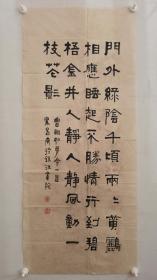 門外綠陰千頃兩〻黃鸝
相應睡起不勝情行到碧
梧金井人靜人靜風動一
枝花影
曹組如夢令一首